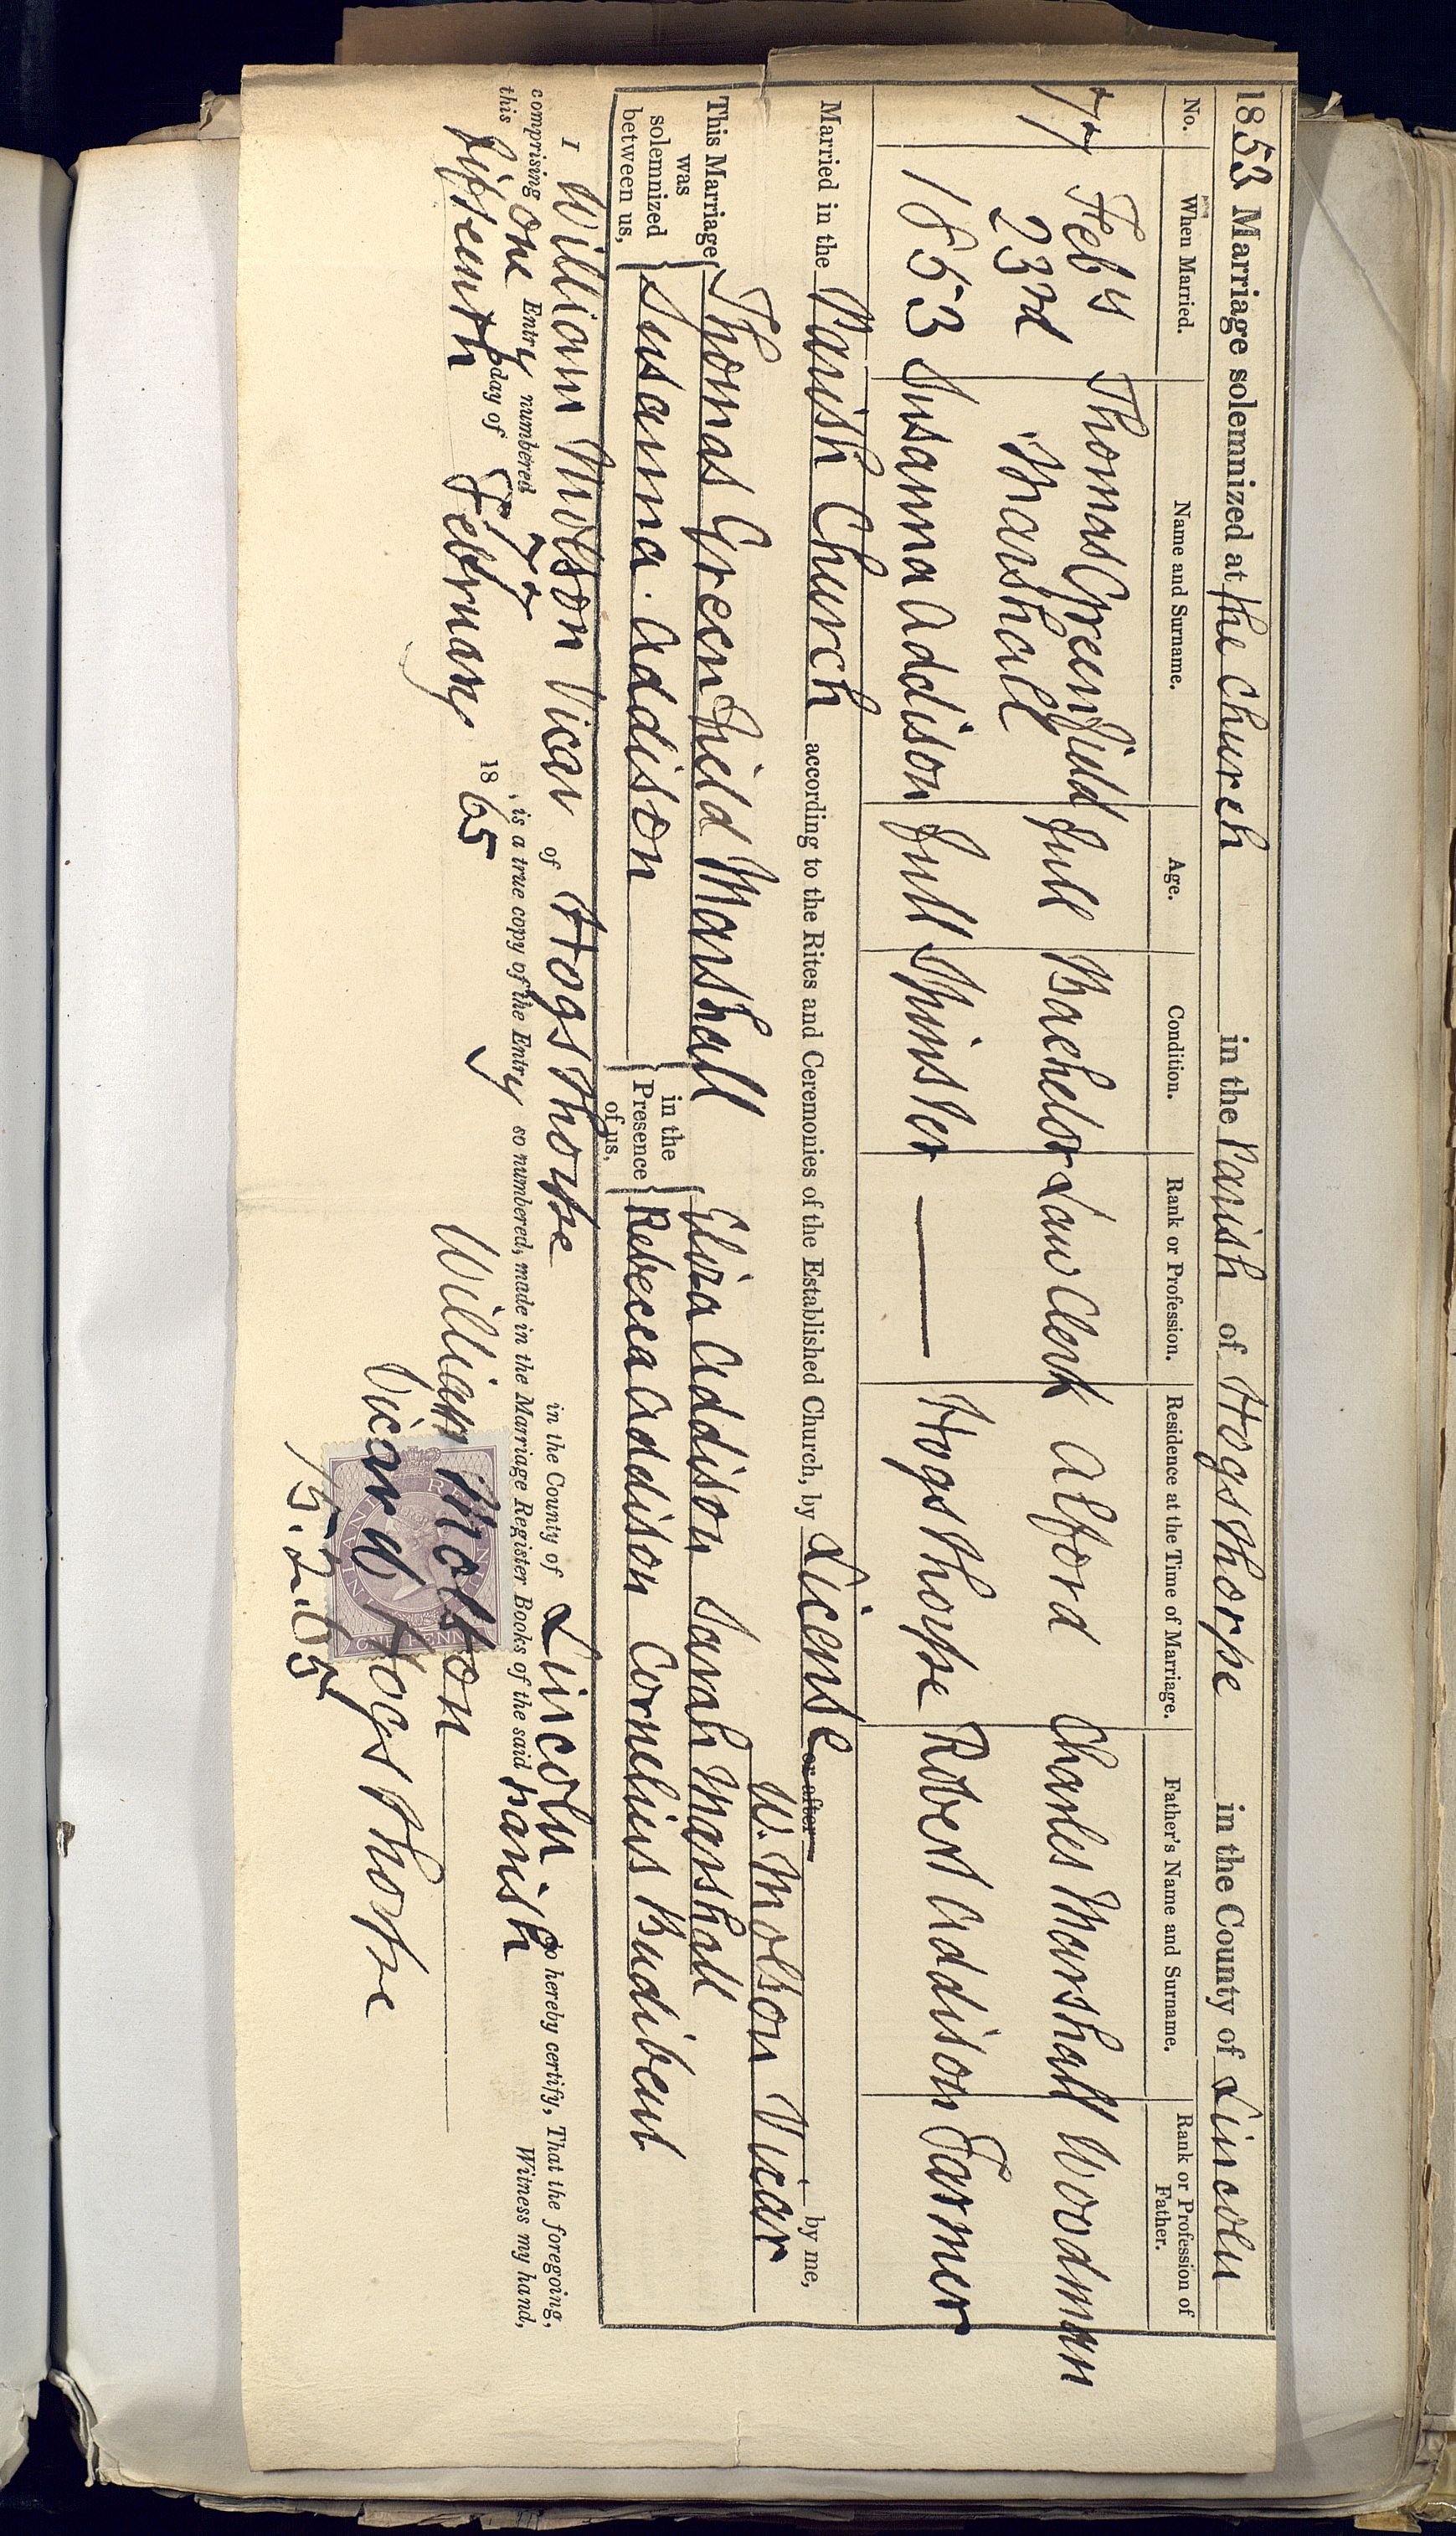 1853 Marriage solemnized at the Church in the Parish of Hogsthorpe in the County of Lincoln
No. When Married. Name and Surname. Age. Condition. Rank or Profession. Residence at the Time of Marriage. Father's Name and Surname. Rank or Profession of Father.
77 Feby 23rd 1853 Thomas Greenfield Marshall full Bachelor Law Clerk Alford Charles Marshall Woodman
Susanna Addison full Spinster — Hogsthorpe Robert Addison Farmer
Married in the Parish Church according to the Rites and Ceremonies of the Established Church, by License or after by me,
W. Molson Vicar
This Marriage was solemnized between us, Thomas Greenfield Marshall in the Presence of us, Eliza Addison Sarah Marshall
Susanna Addison Rebecca Addison Cornelius
I William Molson Vicar of Hogsthorpe in the County of Lincoln do hereby certify, That the foregoing,
comprising one Entry numbered 77, is a true copy of the Entry so numbered, made in the Marriage Register Books of the said parish Witness my hand,
this fifteenth day of February 1865
William Molson
Vicar of Hogsthorpe
15.2.65